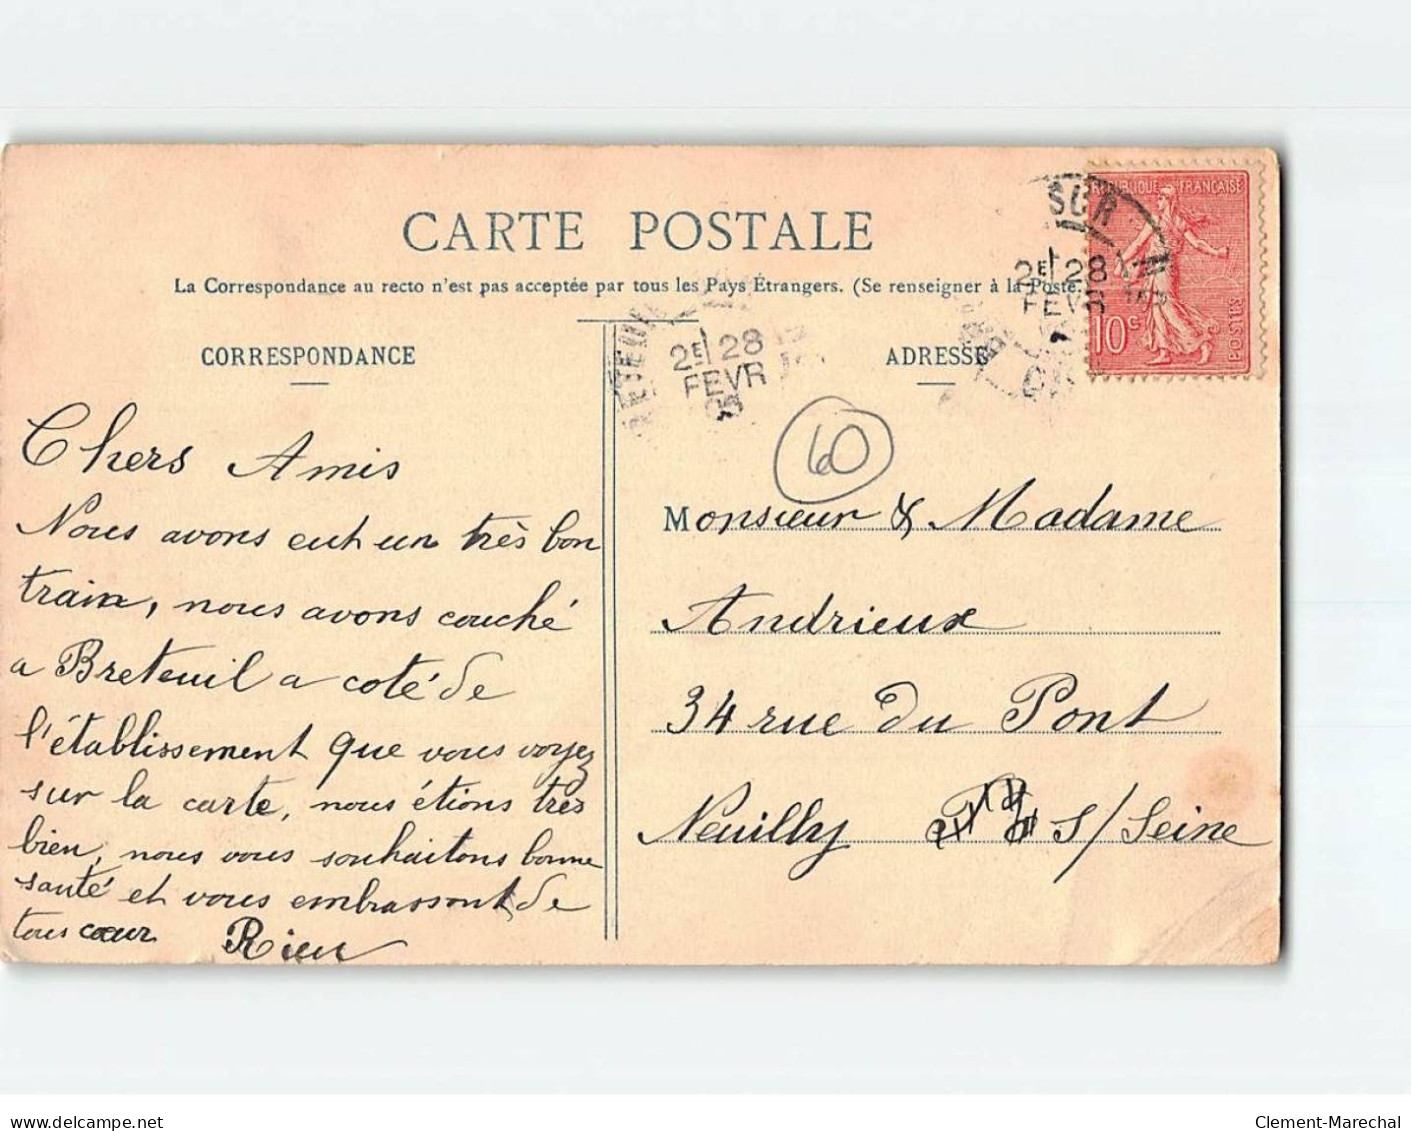 CARTE POSTALE
La Correspondance au recto n'est pas acceptée par tous les Pays Étrangers. (Se renseigner à la Poste
CORRESPONDANCE
Chers Amis
Nous avons eut un très bon
train, nous avons couché
a Breteuil a coté de
l'établissement que vous voyez
sur la carte, nous étions très
bien, nous vous souhaitons bonne
santé et vous embrassont de
tous cœur
Rieu
ADRESSE
Monsieur & Madame
Andrieux
34 rue du Pont
Neuilly S/Seine
60
RÉPUBLIQUE FRANÇAISE
10c
POSTES
SUR
2E 28
FEVR
BRETEUIL
2E 28
FEVR
05
delcampe.net
Clement-Marechal